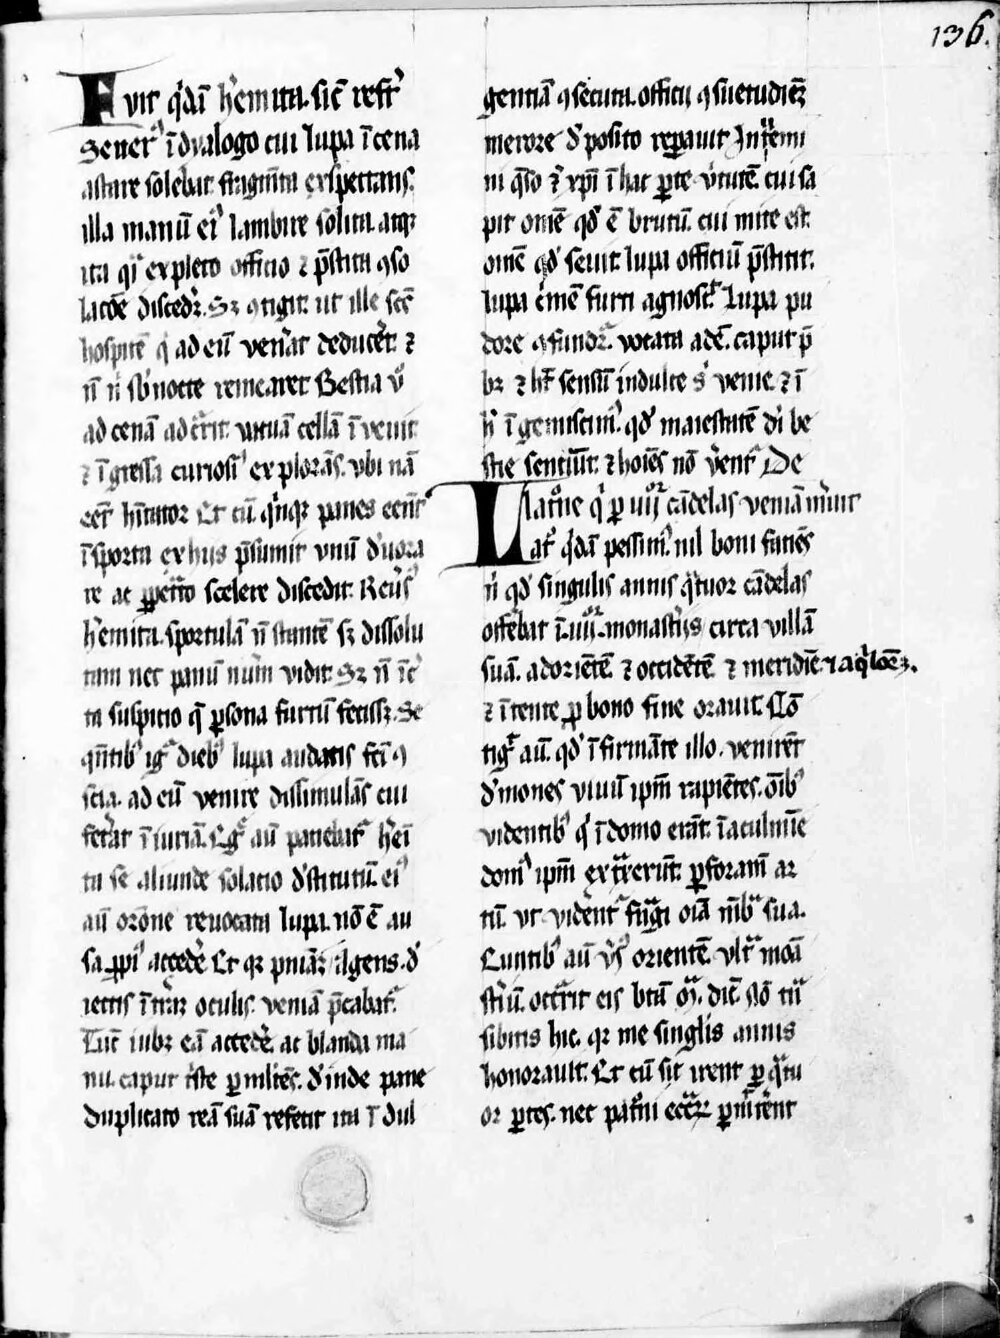 136.
Fuit q̇dā h̓emita. sic̄ refr̄t
Seuer᷒ ī dyalogo cui lupa ī cena
astare solebat. fragm̄ta exspectans.
illa manū ei᷒ lambire solita. atq̢
ita q̇ expleto officio ⁊ p̄stita ꝯso
lac̄oē disced̓e. Sꝫ ꝯtigit. ut ille sc̄s
hospitē q̇ ad eū ven̓at deducēt. ⁊
n̄ n̄ sb̓ nocte remearet Bestia v̓
ad cenā adc̓rit. vacuā cellā īvenit
⁊ īgressa curiosi᷒ explorās. vbi nā
eēt h̓itator Et cū q̇nq̢ panes eēnt
ī sporta ex hiis p̄sumit vnū d̓uora
re ac ꝑpet̓to scelere discedit. Reūs᷒
h̓emita. sportulā n̄ stantē sꝫ dissolu
tam nec panū num̓ vidit. Sꝫ n̄ īc̓
ta suspicio q̄ ꝑsona furtū fecissꝫ. Se
q̄ntib᷒ ig̓ dieb᷒ lupa audacis fc̄i ꝯ
scia. ad eū venire dissimulās cui
fec̓at īiuriā. Egr̄ aū paciebat᷒ h̓emi
ta se aliunde solacio d̓stitutū. ei᷒
aū or̄one reuocata lupa. nō ē au
sa ꝓpi᷒ acced̓e Et
iectis ī t̓rā oculis. veniā p̄cabat᷒.
Tūc iubꝫ eā acced̓e. ac blanda ma
nu. caput t̓ste ꝑmulcēs. d̓inde pane
duplicato reā suā refecit ita ī dul
gentiā ꝯsecuta. officii ꝯsuetudīēꝫ
merore d̓posito repauit
ni q̄so ⁊ xp̄i ī hac ꝑte v̓tutē cui sa
pit om̄e qd̓ ē brutū. cui mite est
om̄e qd̓ seuit. lupa officiū p̄stitit.
lupa c̓mē furti agnosc̓t. Lupa pu
dore ꝯfund̓. vocata adē. caput p̄
bꝫ ⁊ h̓t sensū indulte s̓ venie. ⁊ ī
h̓ īgemiscim᷒. qd̓ maiestatē di be
stie senciūt. ⁊ hoīes nō v̓ent᷒ De
Latr̄oe q̇ ꝑ iiij cādelas veniā m̓uit
Latr̓ q̇dā pessim᷒. nil boni faciēs
n̄ qd̓ singulis annis q̓tuor cādelas
offēbat ī. iiij. monast̓iis circa villā
suā. ad orīetē ⁊ occidētē ⁊ meridiē ⁊ aq̓lonē.
⁊ īcente ꝓ bono fine orauit. Cō
tig̓t aū. qd̓ ī firmāte illo. venirēt
d̓mones viuū ip̄m rapiētes. oīb᷒
videntib᷒ q̇ ī domo erāt. ī aculmīe
dom᷒ ip̄m ext̓xerūt. ꝑforam̄ ar
tū. vt vidēnt᷒ frāgi oīa mēb̓ sua.
Euntib᷒ aū v̓s᷒ orientē. vlt̓ moā
st̓iū. occ̓rit eis
sibitis hic. qꝛ me singl̓is annis
honorauit. Et cū sic irent ꝑ q̓tu
or ꝑtes. nec pat̓ni ecc̓aꝝ ꝑmit̓ent